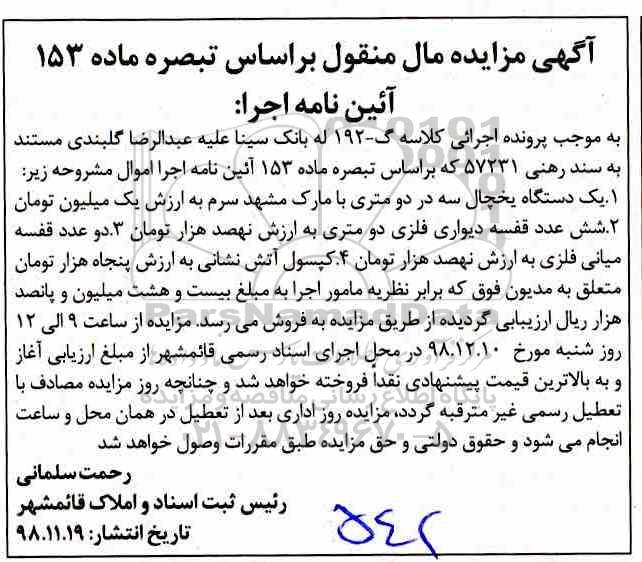 آگهی مزایده مال منقول براساس تبصره ماده ۱۵۳
آئین نامه اجرا:
به موجب پرونده اجرائی کلاسه گ-۱۹۲ له بانک سینا علیه عبدالرضا گلبندی مستند
به سند رهنی ۵۷۲۳۱ که براساس تبصره ماده ۱۵۳ آئین نامه اجرا اموال مشروحه زیر:
۱.یک دستگاه یخچال سه در دو متری با مارک مشهد سرم به ارزش یک میلیون تومان
۲.شش عدد قفسه دیواری فلزی دو متری به ارزش نهصد هزار تومان ۳.دو عدد قفسه
میانی فلزی به ارزش نهصد هزار تومان ۴.کپسول آتش نشانی به ارزش پنجاه هزار تومان
متعلق به مدیون فوق که برابر نظریه مامور اجرا به مبلغ بیست و هشت میلیون و پانصد
هزار ریال ارزیبابی گردیده از طریق مزایده به فروش می رسد. مزایده از ساعت ۹ الی ۱۲
روز شنبه مورخ ۹۸.۱۲.۱۰ در محل اجرای اسناد رسمی قائمشهر از مبلغ ارزیابی آغاز
و به بالاترین قیمت پیشنهادی نقداً فروخته خواهد شد و چنانچه روز مزایده مصادف با
تعطیل رسمی غیر مترقبه گردد، مزایده روز اداری بعد از تعطیل در همان محل و ساعت
انجام می شود و حقوق دولتی و حق مزایده طبق مقررات وصول خواهد شد
رحمت سلمانی
رئیس ثبت اسناد و املاک قائمشهر
تاریخ انتشار: ۹۸.۱۱.۱۹
ParsNamadData
پایگاه اطلاع رسانی مناقصه و مزایده